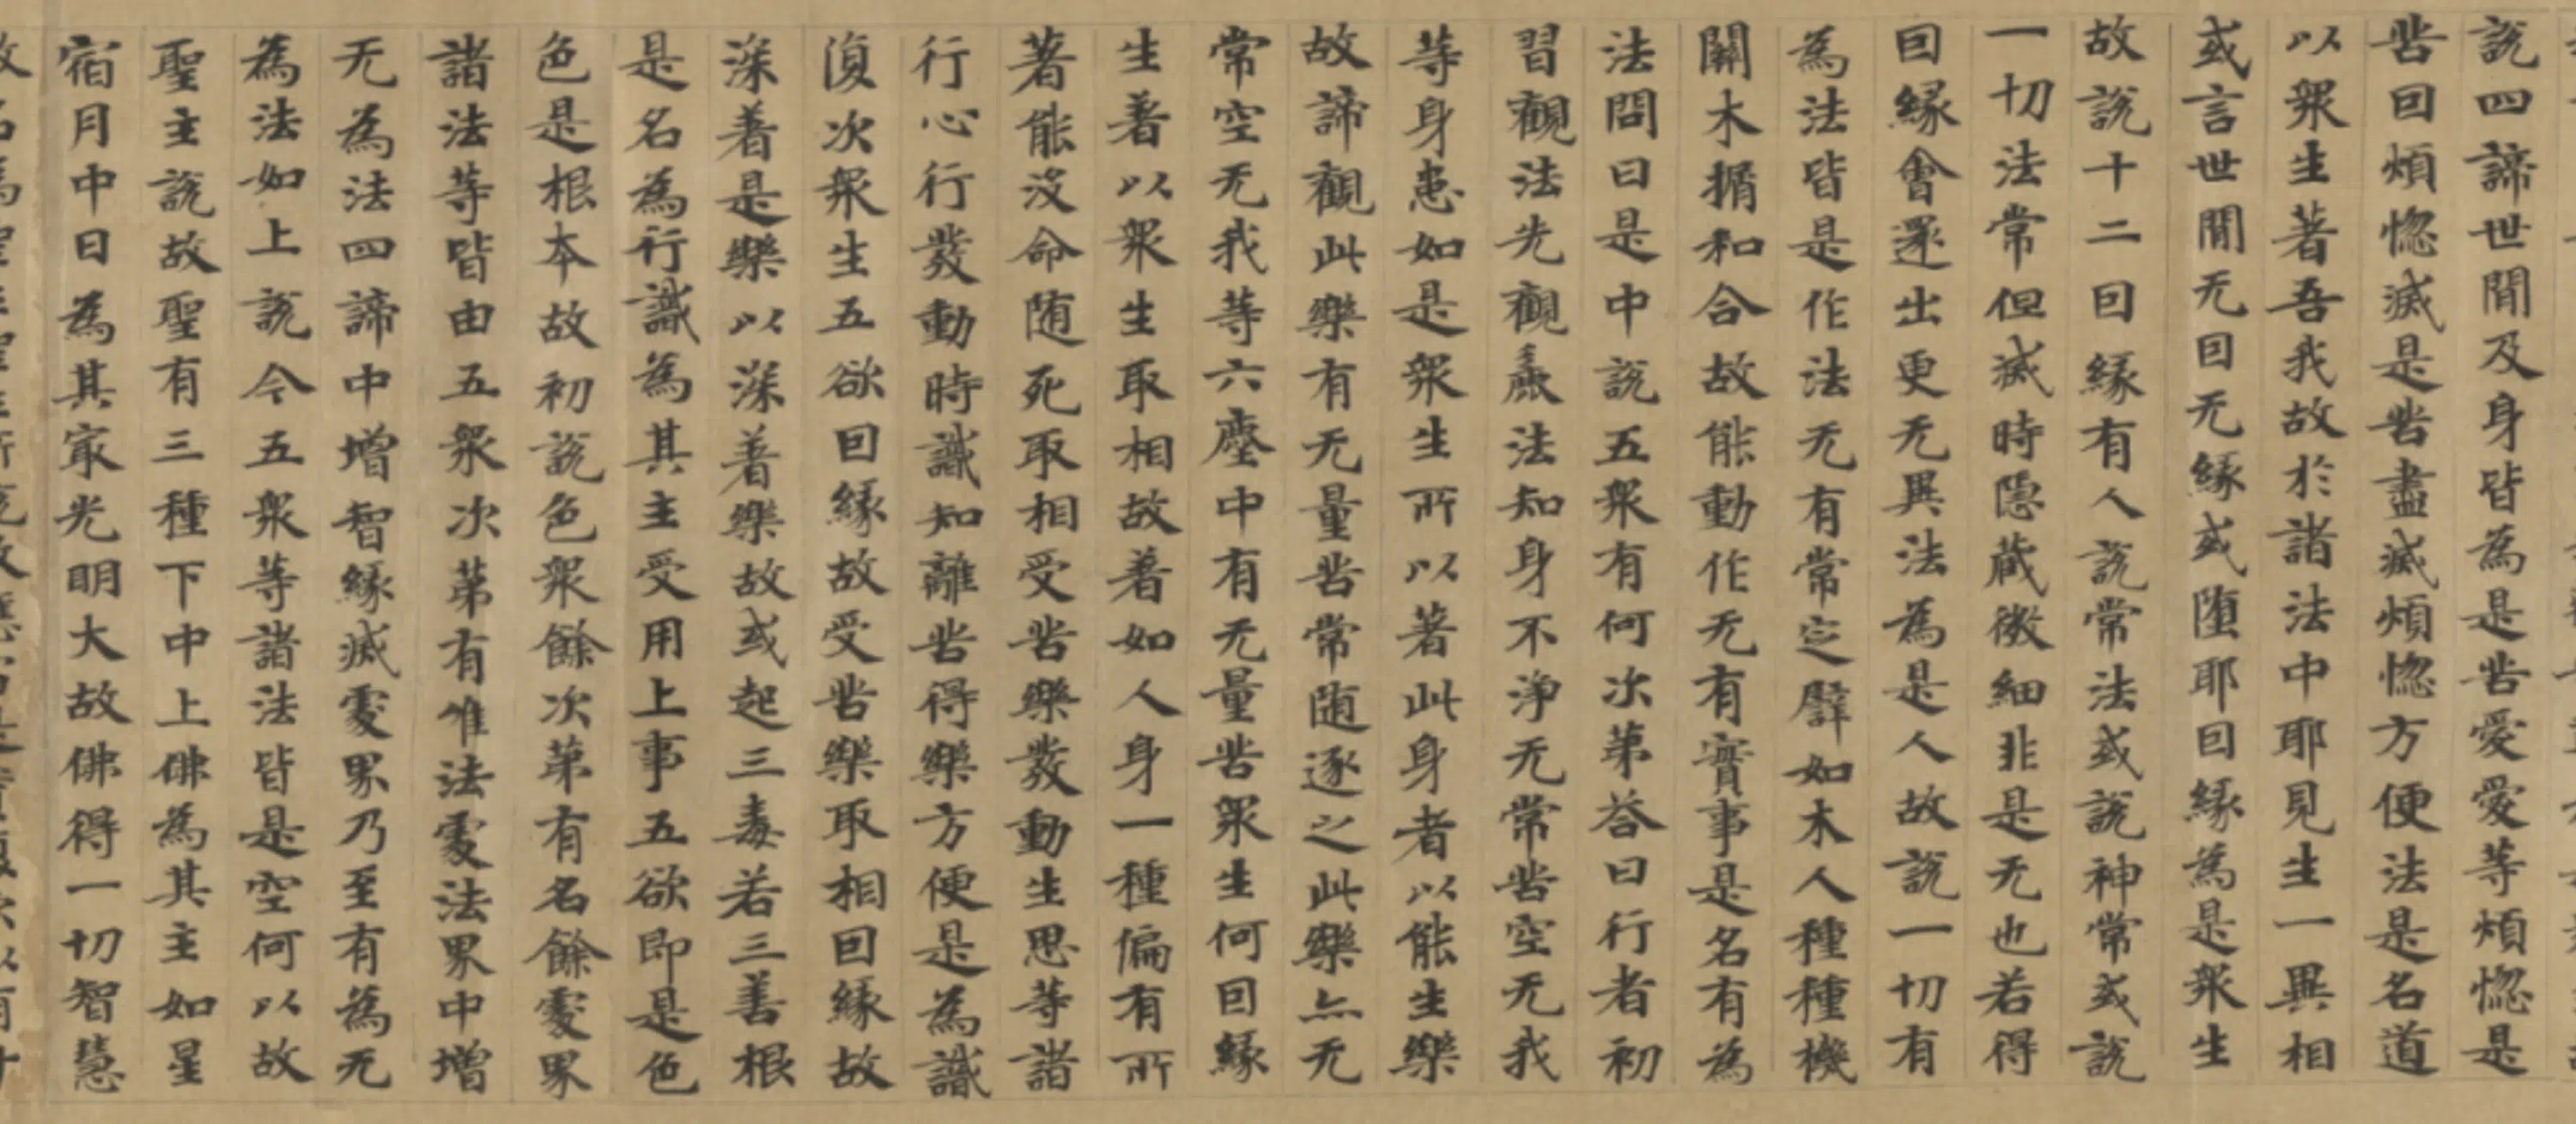 說四諦世間及身皆為是苦愛愛等煩惚是
苦囙煩惚滅是苦盡滅煩惚方便法是名道
以衆生著吾我故於諸法中耶見生一異相
或言世間无囙无緣或墮耶囙緣為是衆生
故說十二囙緣有人說常法或說神常或說
一切法常但滅時隱蔵微細非是无也若得
囙緣會還出更无異法為是人故說一切有
為法皆是作法无有常定譬如木人種種機
關木揗和合故能動作无有實事是名有為
法問曰是中說五衆有何次第荅曰行者初
習觀法先觀麁法知身不淨无常苦空无我
等身患如是衆生所以著此身者以能生樂
故諦觀此樂有无量苦常随逐之此樂亦无
常空无我等六塵中有无量苦衆生何囙緣
生著以衆生取相故著如人身一種偏有所
著能没命随死取相受苦樂發動生思等諸
行心行發動時識知離苦得樂方便是為識
復次衆生五欲囙緣故受苦樂取相囙緣故
深著是樂以深著樂故或起三毒若三善根
是名為行識為其主受用上事五欲即是色
色是根本故初說色衆餘次第有名餘處界
諸法等皆由五衆次第有唯法處法界中增
无為法四諦中增智緣滅處界乃至有為无
為法如上說今五衆等諸法皆是空何以故
聖主說故聖有三種下中上佛為其主如星
宿月中日為其冣光明大故佛得一切智慧